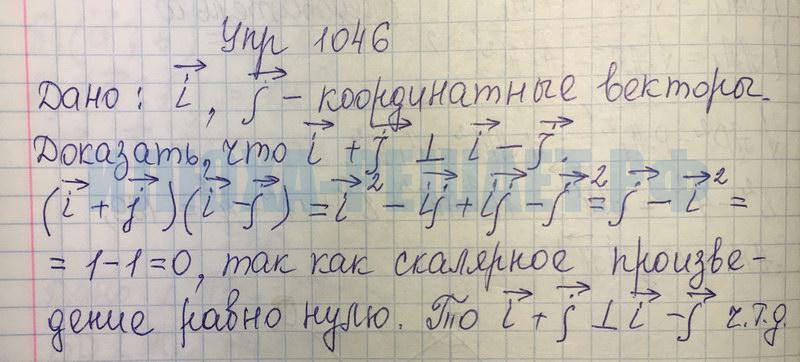 Упр 1046
Дано: i⃗, j⃗ – координатные векторы.
Доказать, что i⃗ + j⃗ ⊥ i⃗ – j⃗.
(i⃗ + j⃗)(i⃗ – j⃗) = i⃗² – i⃗j⃗ + i⃗j⃗ – j⃗² = j⃗ – i⃗² =
= 1–1=0, так как скалярное произве–
дение равно нулю. То i⃗ + j⃗ ⊥ i⃗ – j⃗ ч.т.д.